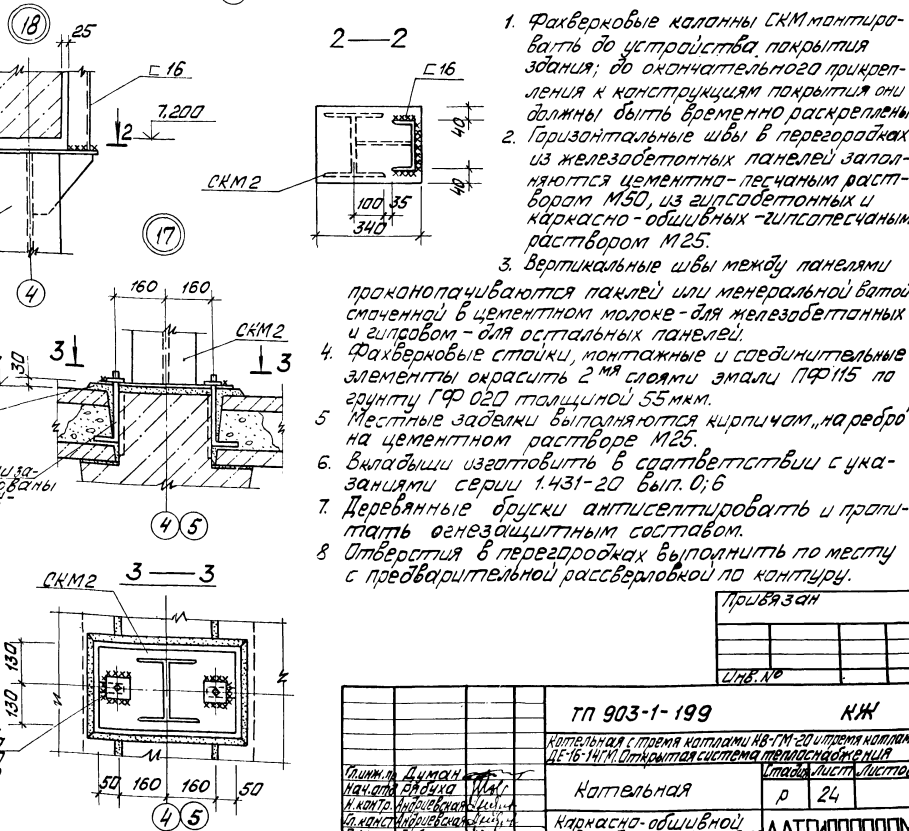 18
25
⊏ 16
7.200
2
4
2 — 2
⊏ 16
40
СКМ 2
40
100
35
340
17
160 160
СКМ 2
3 3
30
4 5
3 — 3
СКМ2
130
130
50 160 160 50
4 5
1. Фахверковые каланны СКМ монтиро-
вать до устройства покрытия
здания; до окончательного прикреп-
ления к конструкциям покрытия они
должны быть временно раскреплены
2. Горизонтальные швы в перегородках
из железобетонных панелей запол-
няются цементно-песчаным раст-
вором М50, из гипсобетонных и
каркасно-обшивных-гипсопесчаным
раствором М25.
3. Вертикальные швы между панелями
проконопачиваются паклей или менеральной ватой
смоченной в цементном молоке-для железобетонных
и гипсовом-для остальных панелей.
4. Фахверковые стойки, монтажные и соединительные
элементы окрасить 2 мя слоями эмали ПФ115 по
грунту ГФ 020 толщиной 55мкм.
5 Местные заделки выполняются кирпичом „на ребро
на цементном растворе М25.
6. Вкладыши изготовить в соответствии с ука-
заниями серии 1.431-20 вып. 0; 6
7. Деревянные бруски антисептировать и пропи-
тать огнезащитным составом.
8 Отверстия в перегородках выполнить по месту
с предварительной рассверловкой по контуру.
Привязан
Инв. №
ТП 903-1-199 КЖ
Котельная с тремя котлами КВ-ГМ-20 и тремя котлами
ДЕ-16-14ГМ. Открытая система теплоснабжения
Гл.инж.п Думан
Нач.отд Рядуха
Н.контр. Андриевская
Гл.конст Андриевская
Котельная
Стадия Лист Листов
Р 24
Каркасно-обшивной